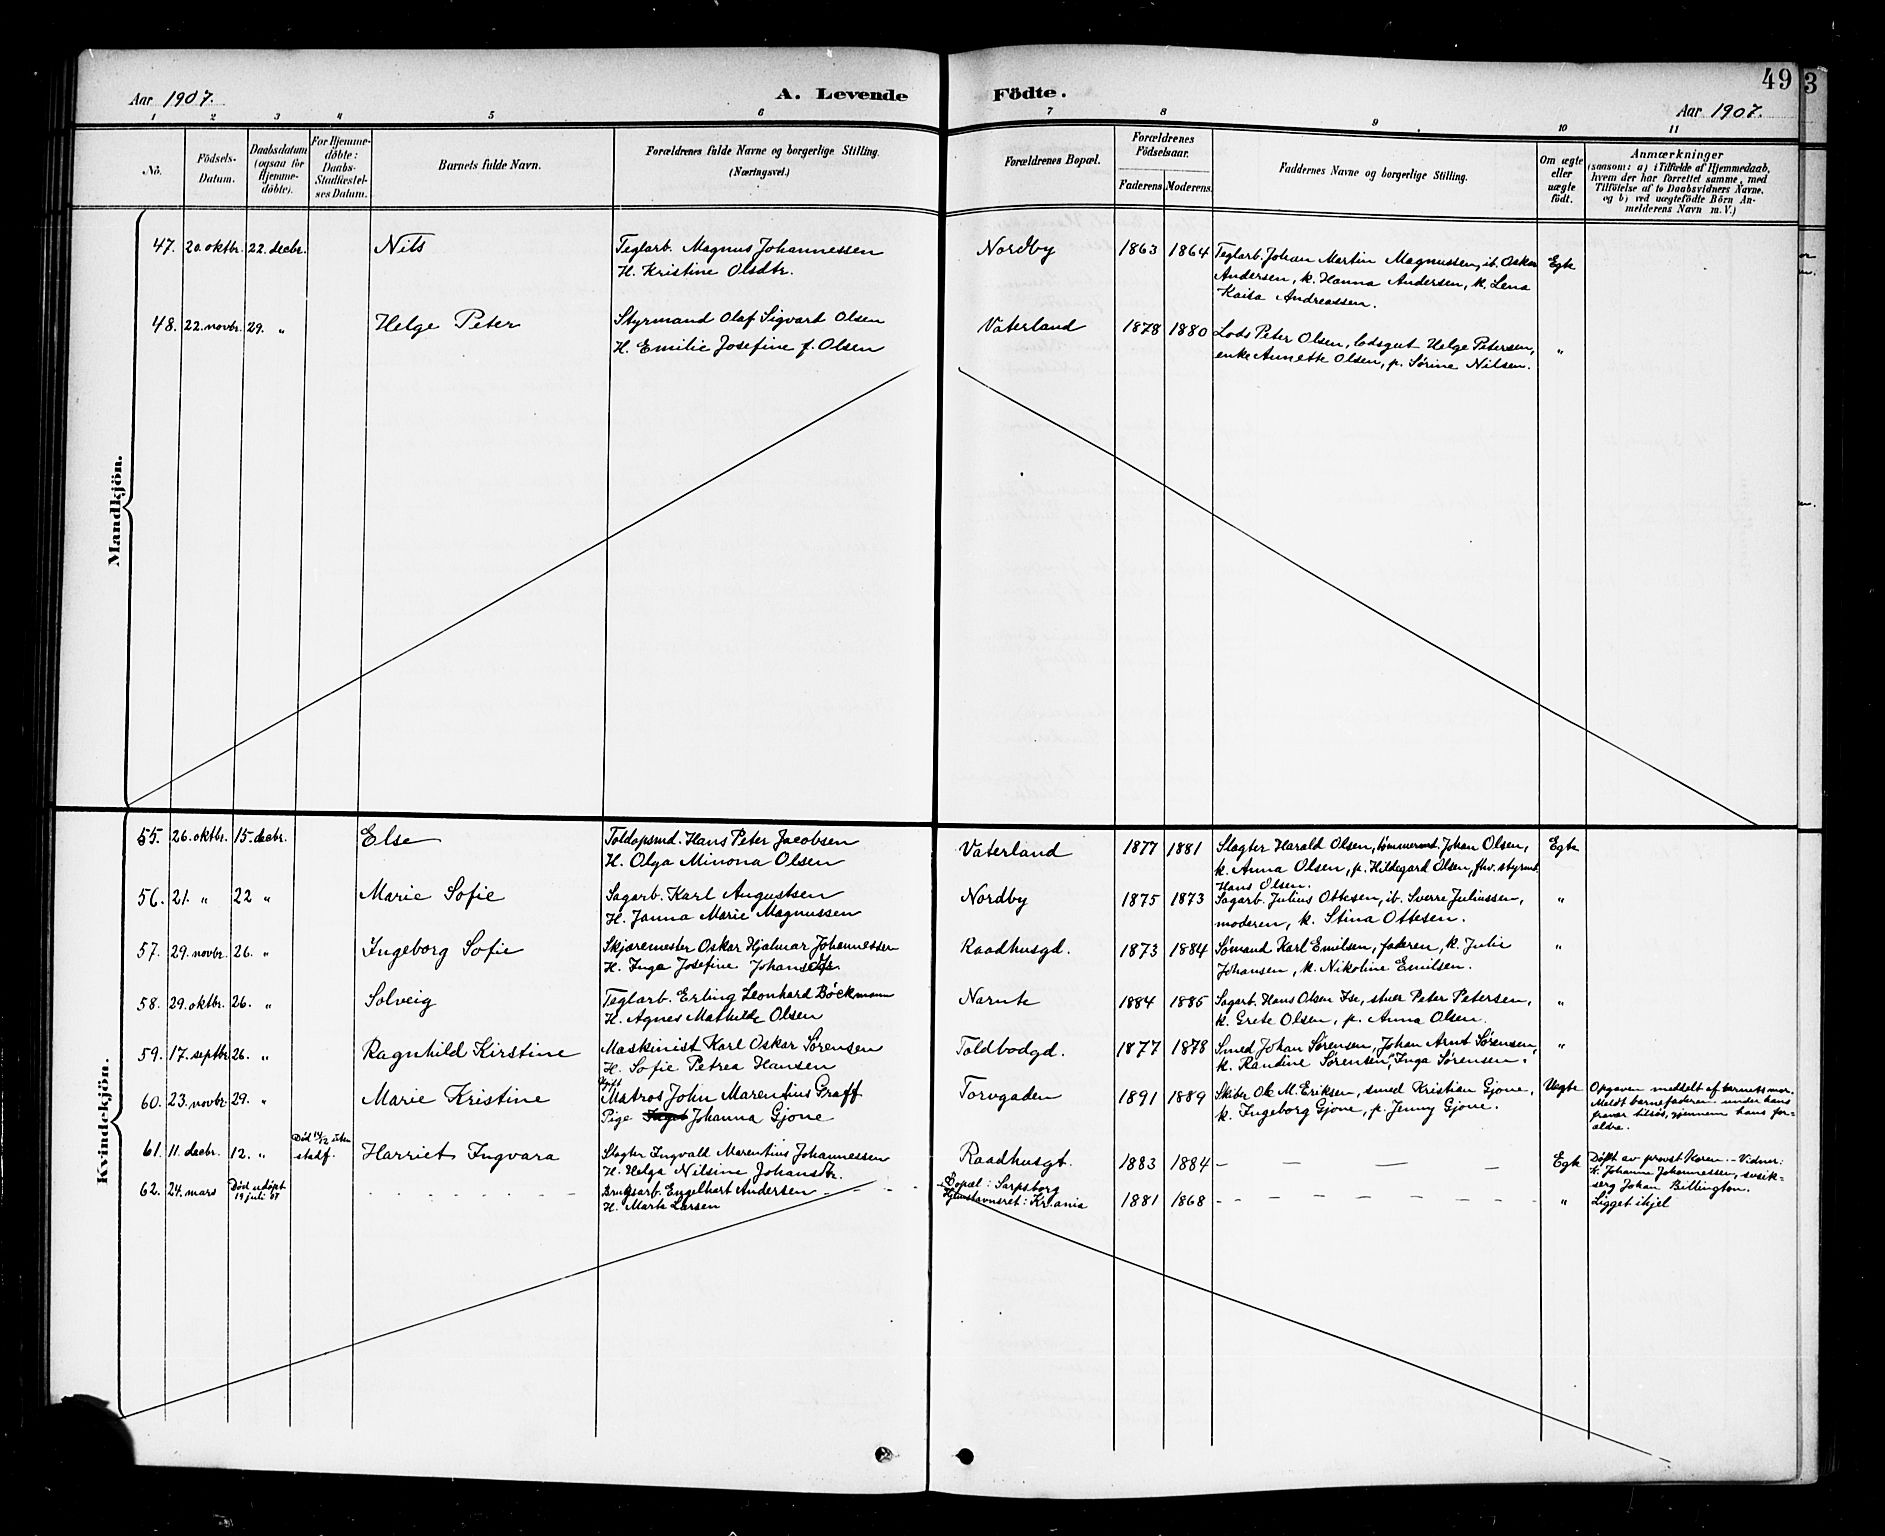 49
3
Aar 1907.
A. Levende Födte.
Aar 1907.
1 2 3 4 5 6 7 8 9 10 11
No.
Födsels-Datum.
Daabsdatum (ogsaa for Hjemme-döbte).
For Hjemme-döbte: Daabs-Stadfæstel-ses Datum.
Barnets fulde Navn.
Forældrenes fulde Navne og borgerlige Stilling. (Næringsvei.)
Forældrenes Bopæl.
Forældrenes Födselsaar.
Faderens Moderens.
Faddernes Navne og borgerlige Stilling.
Om ægte eller uægte födt.
Anmærkninger
(saasom: a) i Tilfælde af Hjemmedaab,
hvem der har forrettet samme, med
Tilföielse af to Daabsvidners Navne.
og b) ved uægtefödte Börn An-
melderens Navn m. V.)
Mandkjön.
47. 20. oktbr. 22. decbr. Nils Teglarb. Magnus Johannessen Nordby 1863 1864 Teglarb. Johan Martin Magnussen, ib. Oskar Egte
H. Kristine Olsdtr. Andersen, k. Hanna Andersen, k. Lena
Kaisa Andreassen.
48. 22. novbr. 29. " Helge Peter Styrmand Olaf Sigvart Olsen Vaterland 1878 1880 Lods Peter Olsen, lodsgut Helge Petersen, "
H. Emilie Josefine f. Olsen enke Annette Olsen, p. Sörine Nilsen.
Kvindekjön.
55. 26. oktbr. 15. decbr. Else Toldopsmd. Hans Peter Jacobsen Vaterland 1877 1881 Slagter Harald Olsen, tømmermd. Johan Olsen, Egte
H. Olga Minona Olsen k. Anna Olsen, p. Hildegard Olsen, fhv. styrmd.
Hans Olsen.
56. 21. " 22 " Marie Sofie Sagarb. Karl Augustsen Nordby 1875 1873 Sagarb. Julius Ottesen, ib. Sverre Juliussen, "
H. Janna Marie Magnussen moderen, k. Stina Ottesen.
57. 29. novbr. 26. " Ingeborg Sofie Skjæremester Oskar Hjalmar Johannessen Raadhusgd. 1873 1884 Sømand Karl Emilsen, faderen, k. Julie "
H. Inga Josefine Johansdtr. Johansen, k. Nikoline Emilsen.
58. 29. oktbr. 26. " Solveig Teglarb. Erling Leonhard Böckmann Narnte 1884 1885 Sagarb. Hans Olsen Ise, stuer Peter Petersen, "
H. Agnes Mathilde Olsen k. Grete Olsen, p. Anna Olsen.
59. 17. septbr. 26. " Ragnhild Kirstine Maskinist Karl Oskar Sørensen Toldbodgd. 1877 1878 Smed Johan Sørensen, Johan Arnt Sørensen, "
H. Sofie Petrea Hansen k. Randine Sørensen, Inga Sørensen.
60. 23. novbr. 29. " Marie Kristine Matros John Marentius Graff Torvgaden 1891 1889 Skibr. Ole M. Eriksen, smed Kristian Gjone, Uegte Opgaven meddelt af barnets mor.
Pige Johanna Gjone k. Ingeborg Gjone, p. Jenny Gjone. Meldt barnefaderen under hans
fravær tilsøs, gjennem hans for-
ældre.
61. 11. decbr. 12. " Død 14/12 uten stadf. Harriet Ingvara Slagter Ingvald Marentius Johannessen Raadhusgt. 1883 1884 – – – – Egte Døpt av provst Koren – Vidner:
H. Helga Nilsine Johansdtr. k. Johanne Johannessen, svisk-
serg Johan Billington.
62. 24. mars Død udøpt 19 juli 07 Bruksarb. Engelhart Andersen Bopæl: Sarpsborg 1881 1868 " Ligget ihjel
H. Marta Larsen Hjemstavnsret: Kr.ania